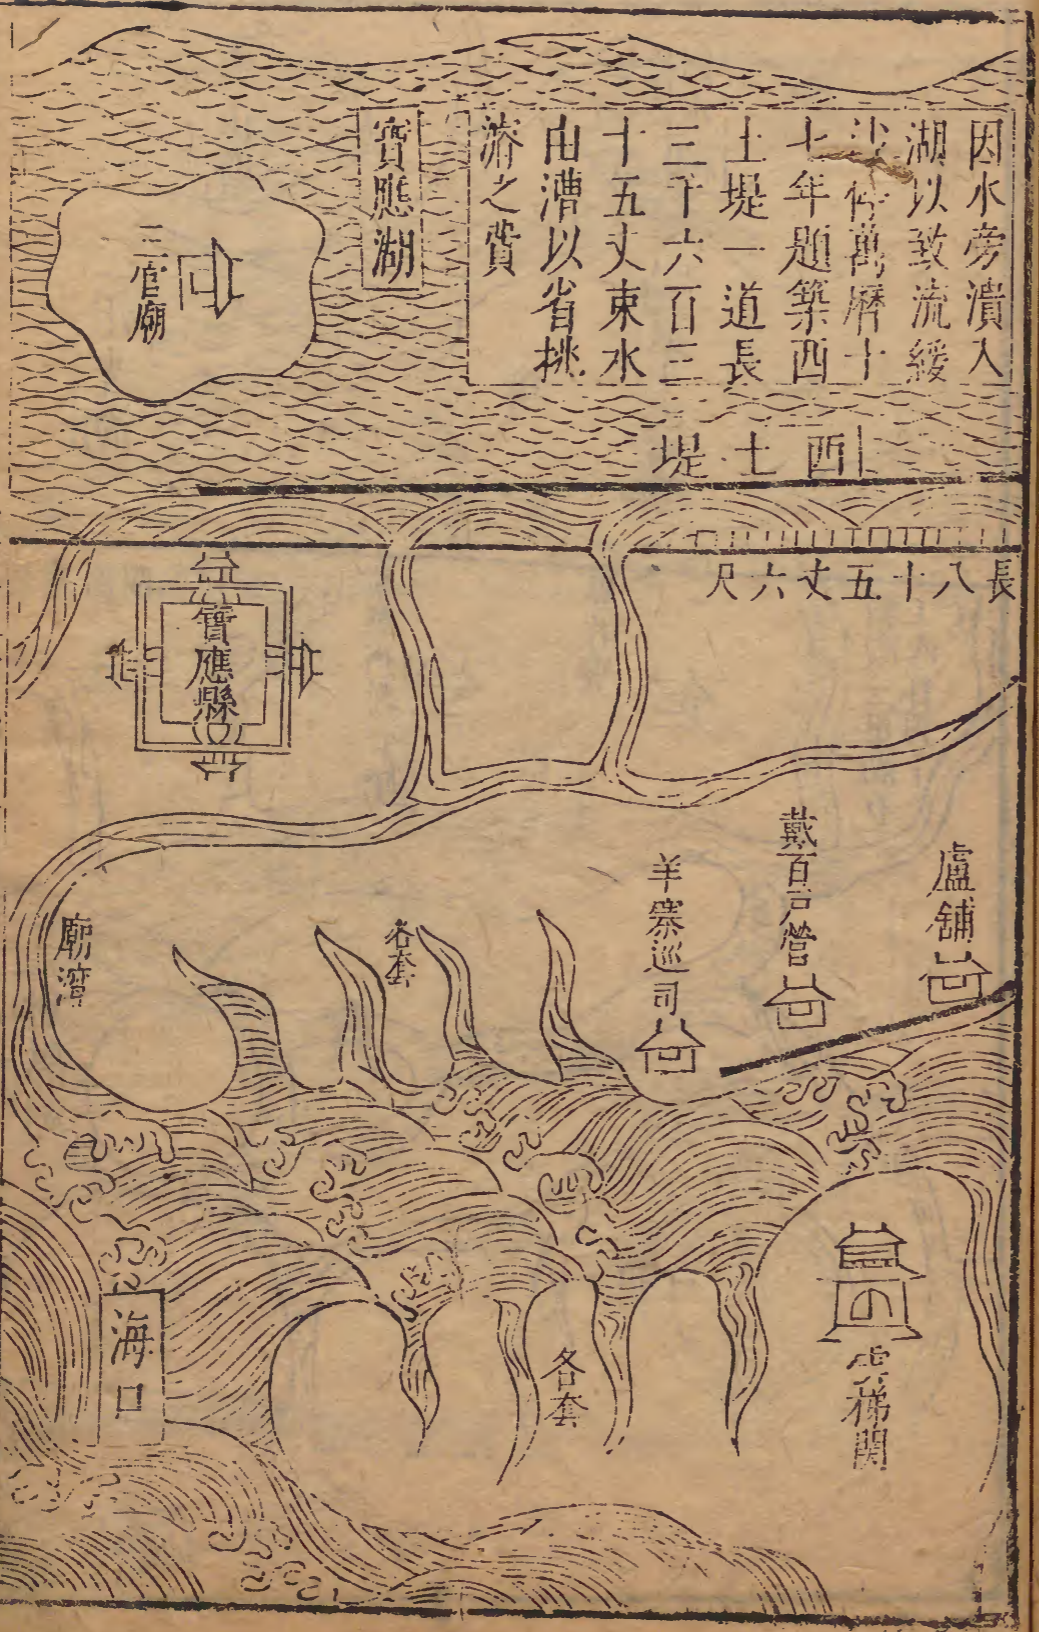 因水旁潰入
湖以致流緩
沙停萬曆十
七年題築西
土堤一道長
三千六百三
十五丈束水
由漕以省挑
濬之費
寶應湖
三官廟
西土堤
長八十五丈六尺
寶應縣
盧舖
戴百戶營
羊寨巡司
各套
廟灣
雲梯関
各套
海口